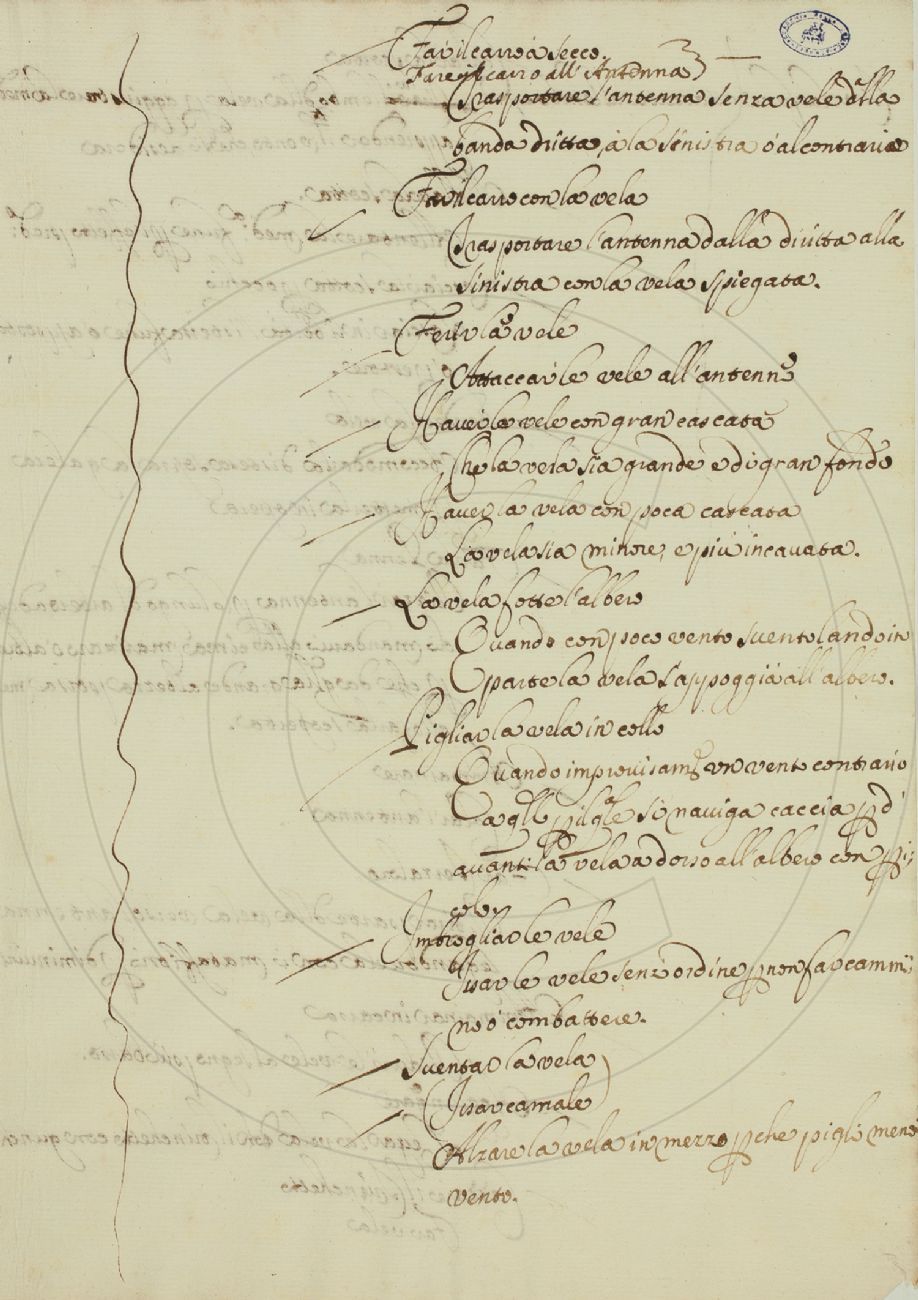 Far il carro à secco.
Fare il carro all'Antenna
Trasportare l'antenna senza vele dalla
banda dritta, à la sinistra ò al contrario
Far il carro con la vela
Trasportare l'antenna dalla diritta alla
sinistra con la vela spiegata.
Ferir la vele
Attaccar le vele all'antenne
Haver la vele con gran cascata
Che la vela sia grande è di gran fondo
Haver la vela con poca cascata
La vela sia minore, e più incavata.
La vela fotte l'albero
Quando con poco vento sventolando in
parte la vela s'appoggia all'albero.
Pigliar la vela in collo
Quando improvisamte un vento contrario
a qll pil qle si naviga caccia p d'
avanti la vela adosso all'albero con pi,
colo.
Imbrogliar le vele
Issar le vele senz'ordine p non far cammi
no ò combattere.
Sventar la vela
Issar camale
Alzare la vela in mezzo pche pigli meno
vento.